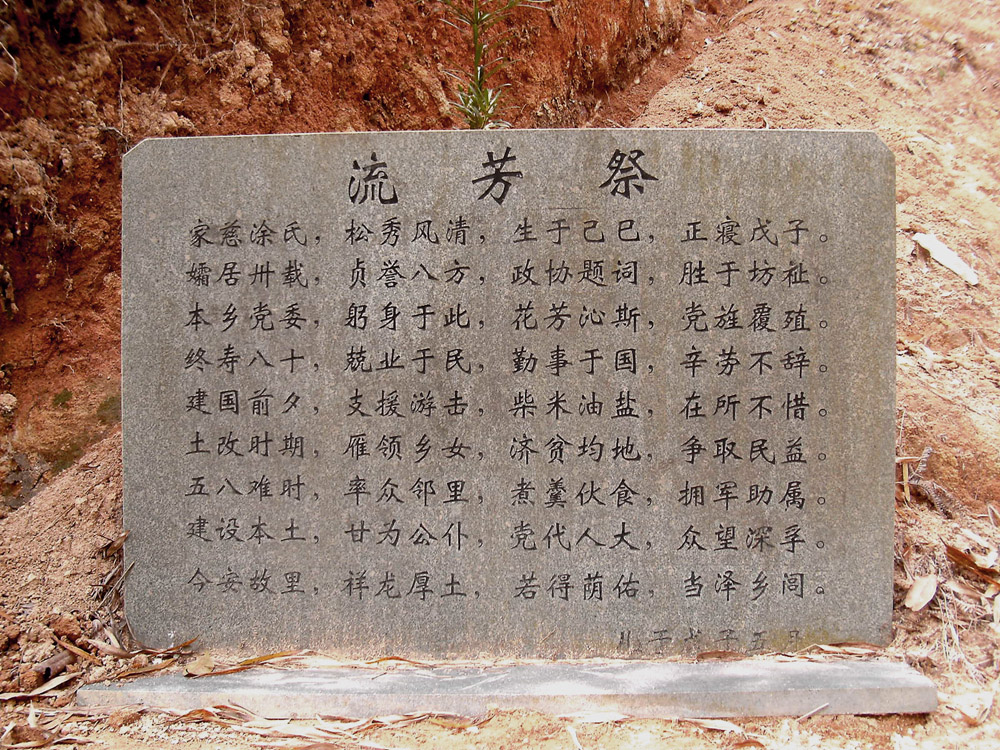 流芳祭
家慈涂氏，松秀风清，生于己巳，正寝戊子。
孀居卅载，贞誉八方，政协题词，胜于坊祉。
本乡党委，躬身于此，花芳沁斯，党旌覆殖。
终寿八十，兢业于民，勤事于国，辛劳不辞。
建国前夕，支援游击，柴米油盐，在所不惜。
土改时期，雁领乡女，济贫均地，争取民益。
五八难时，率众邻里，煮羹伙食，拥军助属。
建设本土，甘为公仆，党代人大，众望深孚。
今安故里，祥龙厚土，若得荫佑，当泽乡闾。
于戊子五月